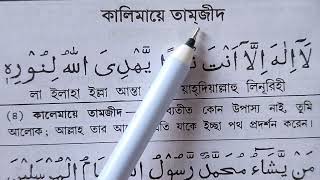 কালিমায়ে তামজীদ
لَآ اِلٰهَ اِلَّآ اَنْتَ يَّهْدِىَ اللّٰهُ لِنُوْرِهٖ
লা ইলাহা ইল্লা আন্তা য়াহ্‌দিয়াল্লাহু লিনূরিহী
(৪) কালেমায়ে তামজীদ- ব্যতীত কোন উপাস্য নাই, তুমি
আলোক; আল্লাহ তাব যাকে ইচ্ছা পথ প্রদর্শন করেন।
مَنْ يَّشَآءُ مُحَمَّدٌ رَّسُوْلُ اللّٰهِ الْمُرْسَلِيْنَ